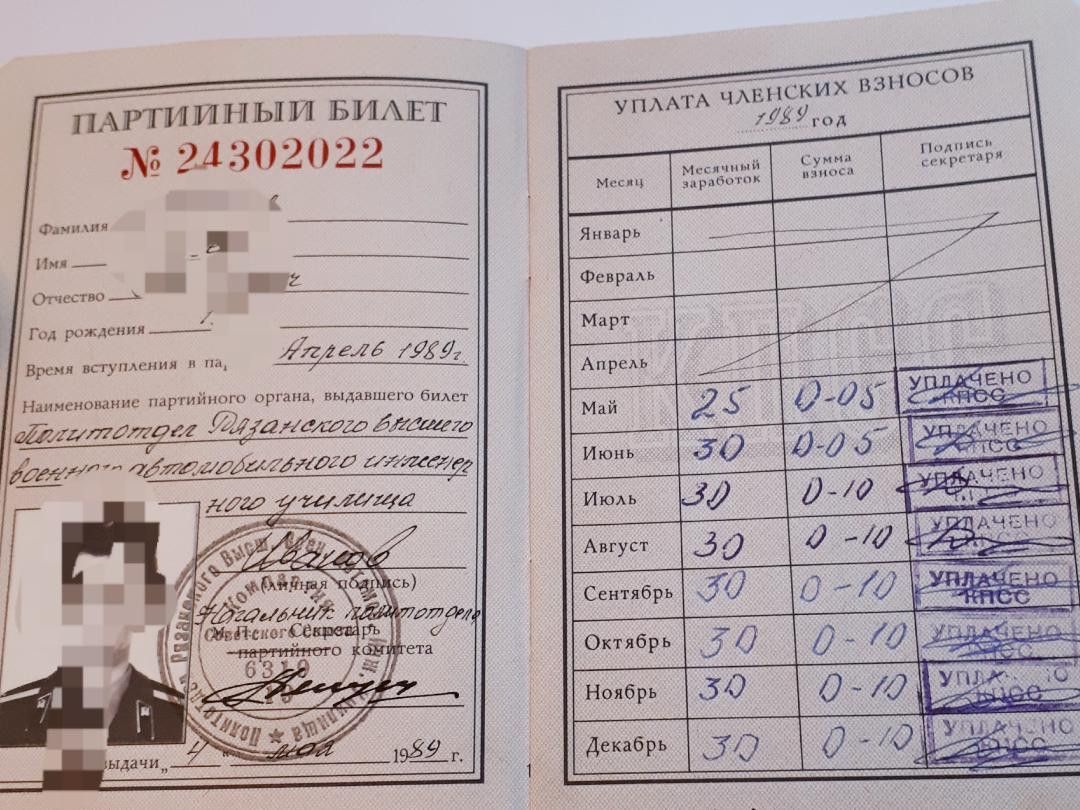 ПАРТИЙНЫЙ БИЛЕТ
№ 24302022
Фамилия
Имя
Отчество
Год рождения
Время вступления в па Апрель 1989г.
Наименование партийного органа, выдавшего билет
Политотдел Рязанского высшего
военного автомобильного инженер
ного училища
(личная подпись)
Начальник политотдела
М. П. Секретарь
партийного комитета
6319
выдачи „4“ мая 1989 г.
УПЛАТА ЧЛЕНСКИХ ВЗНОСОВ
1989 год
Месяц Месячный заработок Сумма взноса Подпись секретаря
Январь
Февраль
Март
Апрель
Май 25 0-05 УПЛАЧЕНО КПСС
Июнь 30 0-05 УПЛАЧЕНО КПСС
Июль 30 0-10 УПЛАЧЕНО
Август 30 0-10 УПЛАЧЕНО
Сентябрь 30 0-10 УПЛАЧЕНО КПСС
Октябрь 30 0-10 УПЛАЧЕНО КПСС
Ноябрь 30 0-10 КПСС
Декабрь 30 0-10 УПЛАЧЕНО КПСС